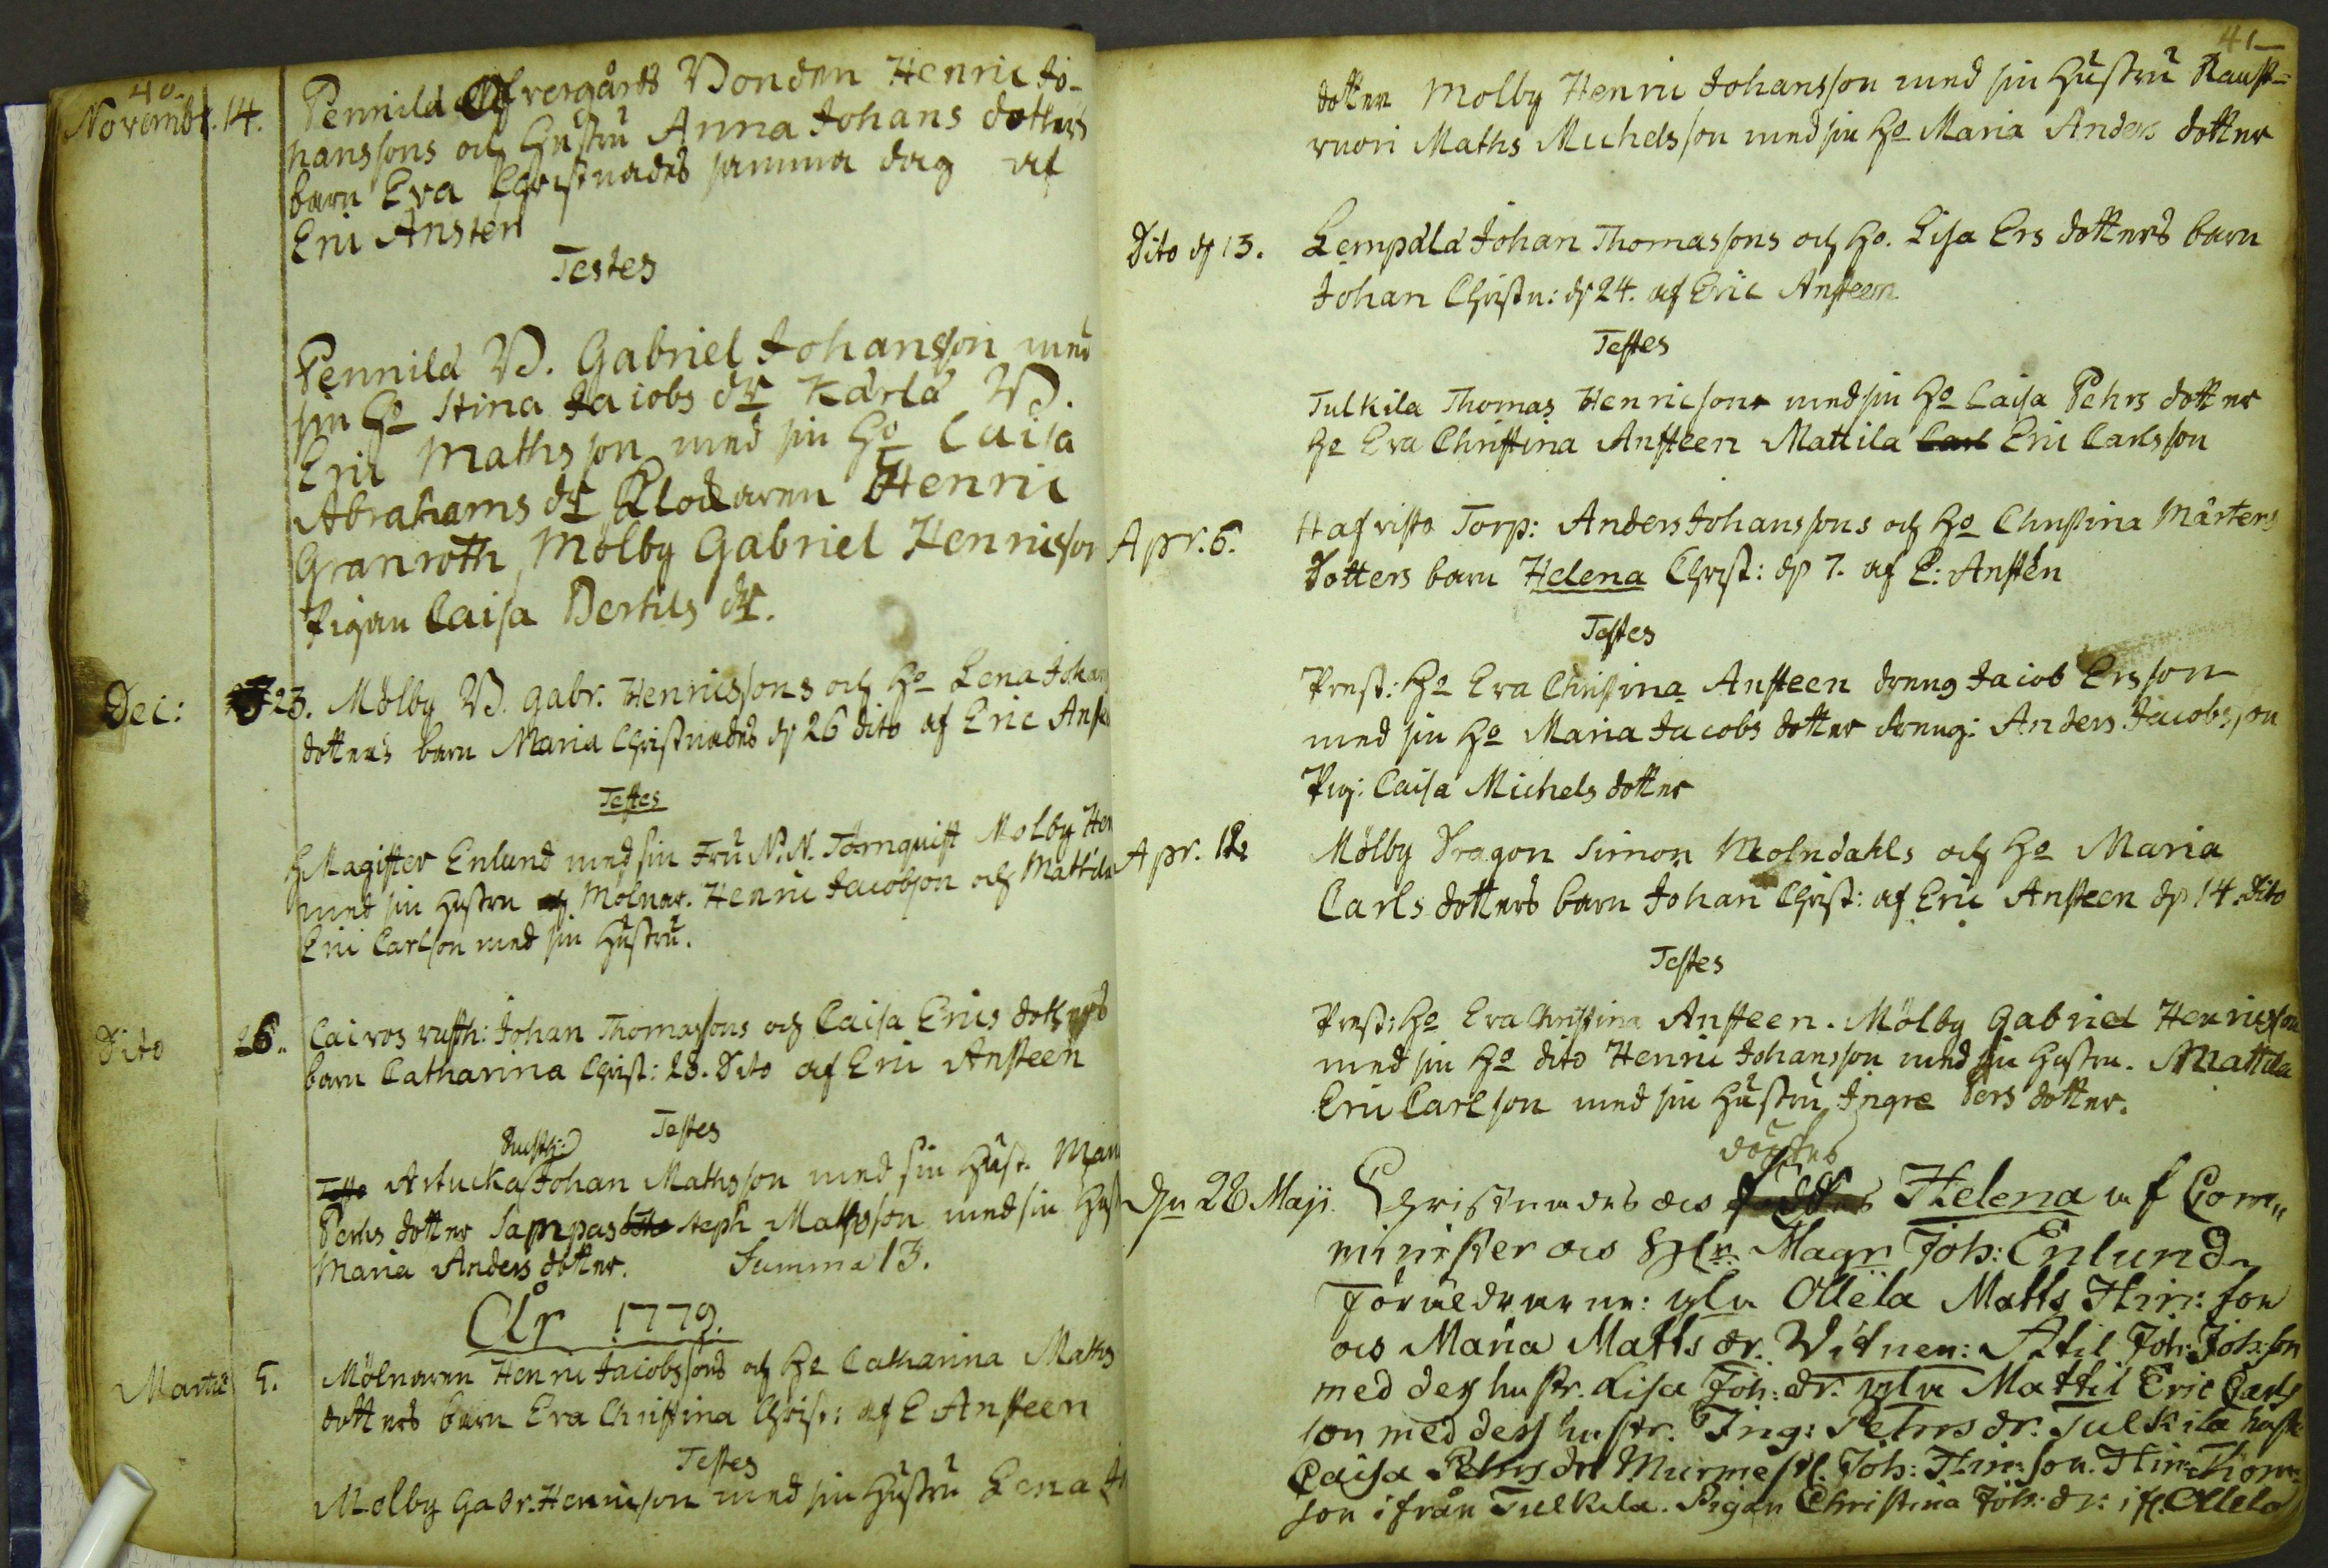 40.
Novembr. 14. Pennilä Öfvergårds Bonden Henric Jo-
hanssons och Hustru Anna Johans dotters
barn Eva Christnades samma dag af
Eric Ansten
Testes
Pennilä B. Gabriel Johansson med
sin Ho Stina Jacobs dr Kärlä B.
Eric Mathsson med sin Ho Caisa
Abrahams dr Klockaren Henric
Granroth, Mölby Gabriel Henricsson
Pigan Caisa Bertils dr.
Dec: 23. Mölby B. Gabr. Henricssons och Ho Lena Johans
dotters barn Maria Christnades d 26 dito af Eric Anst
Testes
H Magister Enlund med sin Fru N. N. Törnquist Molby Hen
med sin Hustru Mölnar. Henric Jacobson och Mattila
Eric Carlson med sin Hustru.
Dito 26. Cairos rusth: Johan Thomassons och Caisa Erics dotters
barn Catharina Christ: 28. Dito af Eric Ansteen
Testes
Rusth:
Artucka Johan Mathsson med sin Hust. Mari
Perhs dotter Sampas Steph Mathsson med sin Hust
Maria Anders dotter. Summa 13.
År 1779.
Martii 5. Mölnaren Henric Jacobssons och Ho Catharina Maths
dotters barn Eva Christina Christ: af E Ansteen
Testes
Mölby Gabr. Henricson med sin Hustru Lena Jo
41
dotter Molby Henric Johansson med sin Hustru Raust-
vuori Maths Michelsson med sin Ho Maria Anders dotter
Dito d 13. Lempälä Johan Thomassons och Ho. Lisa Ers dotters barn
Johan Christn: d 24. af Eric Ansteen
Testes
Tulkila Thomas Henricsons med sin Ho Caisa Pehrs dotter
Ho Eva Christina Ansteen Mattila Carl Eric Carlsson
Apr. 6. Hafvisto Torp: Anders Johanssons och Ho Christina Mårtens
Dotters barn Helena Christ: d 7. af E: Anstén
Testes
Prest: Ho Eva Christina Ansteen dreng Jacob Ersson
med sin Ho Maria Jacobs dotter dreng: Anders Jacobsson
Pig: Caisa Michels dotter
Apr. 12. Mölby Dragon Simon Molndahls och Ho Maria
Carls dotters barn Johan Christ: af Eric Ansteen d 14. dito
Testes
Prest: Ho Eva Christina Ansteen. Mölby Gabriel Henricsson
med sin Ho dito Henric Johansson med sin Hustru. Mattila
Eric Carlson med sin Hustru Ingre Pers dotter.
döptes
Den 28 Maji. Christnades oc Helena af Com„
minister oc Magr Joh: Enlund
Föräldrarne: Ollela Matts Hinr: son
oc Maria Matts dr. Vitnen: Joh: Joh:son
med dess hustr. Lisa Joh: dr. Mattil Eric Carls
son med dess hustr. Ing: Pehrs dr. Tulkila hustr
Caisa Pehrs dr Murme Joh: Hinr: son. Hinr: Thom
son ifrån Tulkila. Pigan Christina Joh: dr: ifr. Ollela